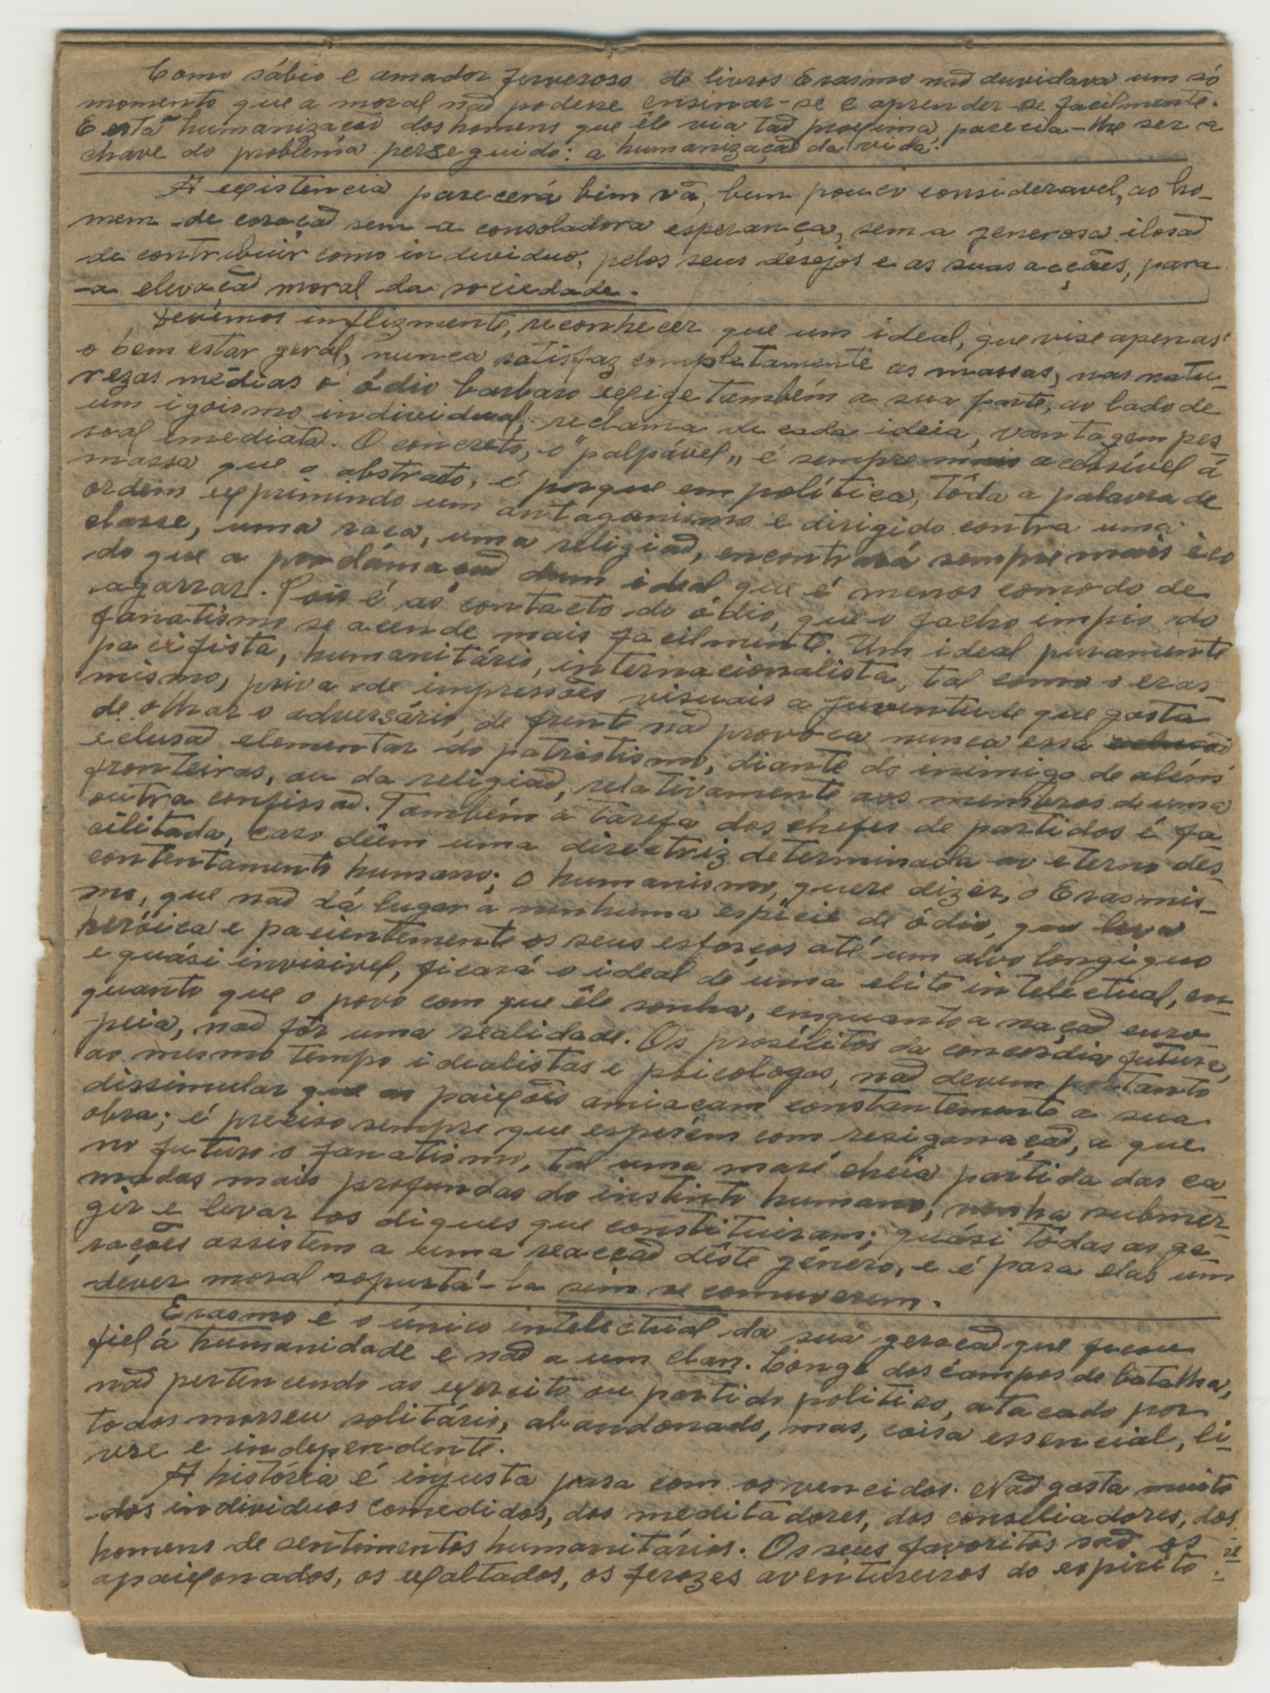 Como sábio e amador fervoroso de livros Erasmo não duvidava um só
momento que a moral não podesse ensinar-se e aprender-se facilmente.
E esta humanização dos homens que êle via tão proxima, parecia-lhe ser a
chave do problema perseguido: a humanização da vida.
A existência parecerá bem vã, bem pouco consideravel, ao ho-
mem de coração sem a consoladora esperança, sem a generosa ilosão
de contribuir como individuo, pelos seus desejos e as suas acções, para
a elevação moral da sociedade.
Devemos inflizmente, reconhecer que um ideal, que vise apenas
o bem estar geral, nunca satisfaz completamente as massas; nas natu-
rezas médias o ódio barbaro exige também a sua parte, ao lado de
um igoismo individual, reclama de cada ideia, vantagem pes-
soal emediata. O concreto, o "palpável" é sempre mais acessível á
massa que o abstrato; é porque em política, tôda a palavra de
ordem exprimindo um antagonismo e dirigido contra uma
classe, uma raca, uma religião, encontrará sempre mais éco
do que a porclámação dum ideal que é menos comodo de
agarrar. Pois é ao contacto do ódio, que o facho impio do
fanatismo se acende mais facilmente. Um ideal puramente
pacifista, humanitário, internacionalista, tal como o eras-
mismo, priva de impressões visuais a juventude que gosta
de olhar o adversário, de frente não provoca nunca essa
eclusão elementar do patriotismo, diante do enimigo de além
fronteiras, ou da religião, relativamente aos membros de uma
outra confissão. Também a tarefa dos chefes de partidos é fa-
cilitada, caso dêem uma directriz determinada ao eterno des-
contentamento humano; o humanismo, quere dizer, o Erasmis-
mo, que não dá lugar a nenhuma espécie de ódio, que leva
heróica e pacientemente os seus esforços até um alvo longiquo
e quási invisivel, ficará o ideal de uma elite intelectual, en-
quanto que o povo com que êle sonha, emquanto a nação euro-
peia, não fôr uma realidade. Os prosélitos da concordia futura,
ao mesmo tempo idealistas e psicologos, não devem portanto
dissimular que as paixões amiaçam constantemente a sua
obra; é preciso sempre que esperem com resiganação, a que
no futuro o fanatismo, tal uma maré cheia partida das ca-
madas mais profundas do instinto humano, venha submer-
gir e levar os diques que constituiram; quási tôdas as ge-
rações assistem a uma reacção dêste género, e é para elas um
dever moral soportá-la sem se comoverem.
Erasmo é o único intelectual da sua geração que ficou
fiel á humanidade e não a um clan. Longe dos campos de batalha,
não pertencendo ao exercito ou partido politico, atacado por
todos morreu solitário, abandonado, mas, coisa essencial, li-
vre e independente.
A história é injusta para com os vencidos. Não gosta muito
dos individuos comedidos, dos meditadores, dos conciliadores, dos
homens de sentimentos humanitários. Os seus favoritos são os
apaixonados, os exaltados, os ferozes aventureiros do espirito